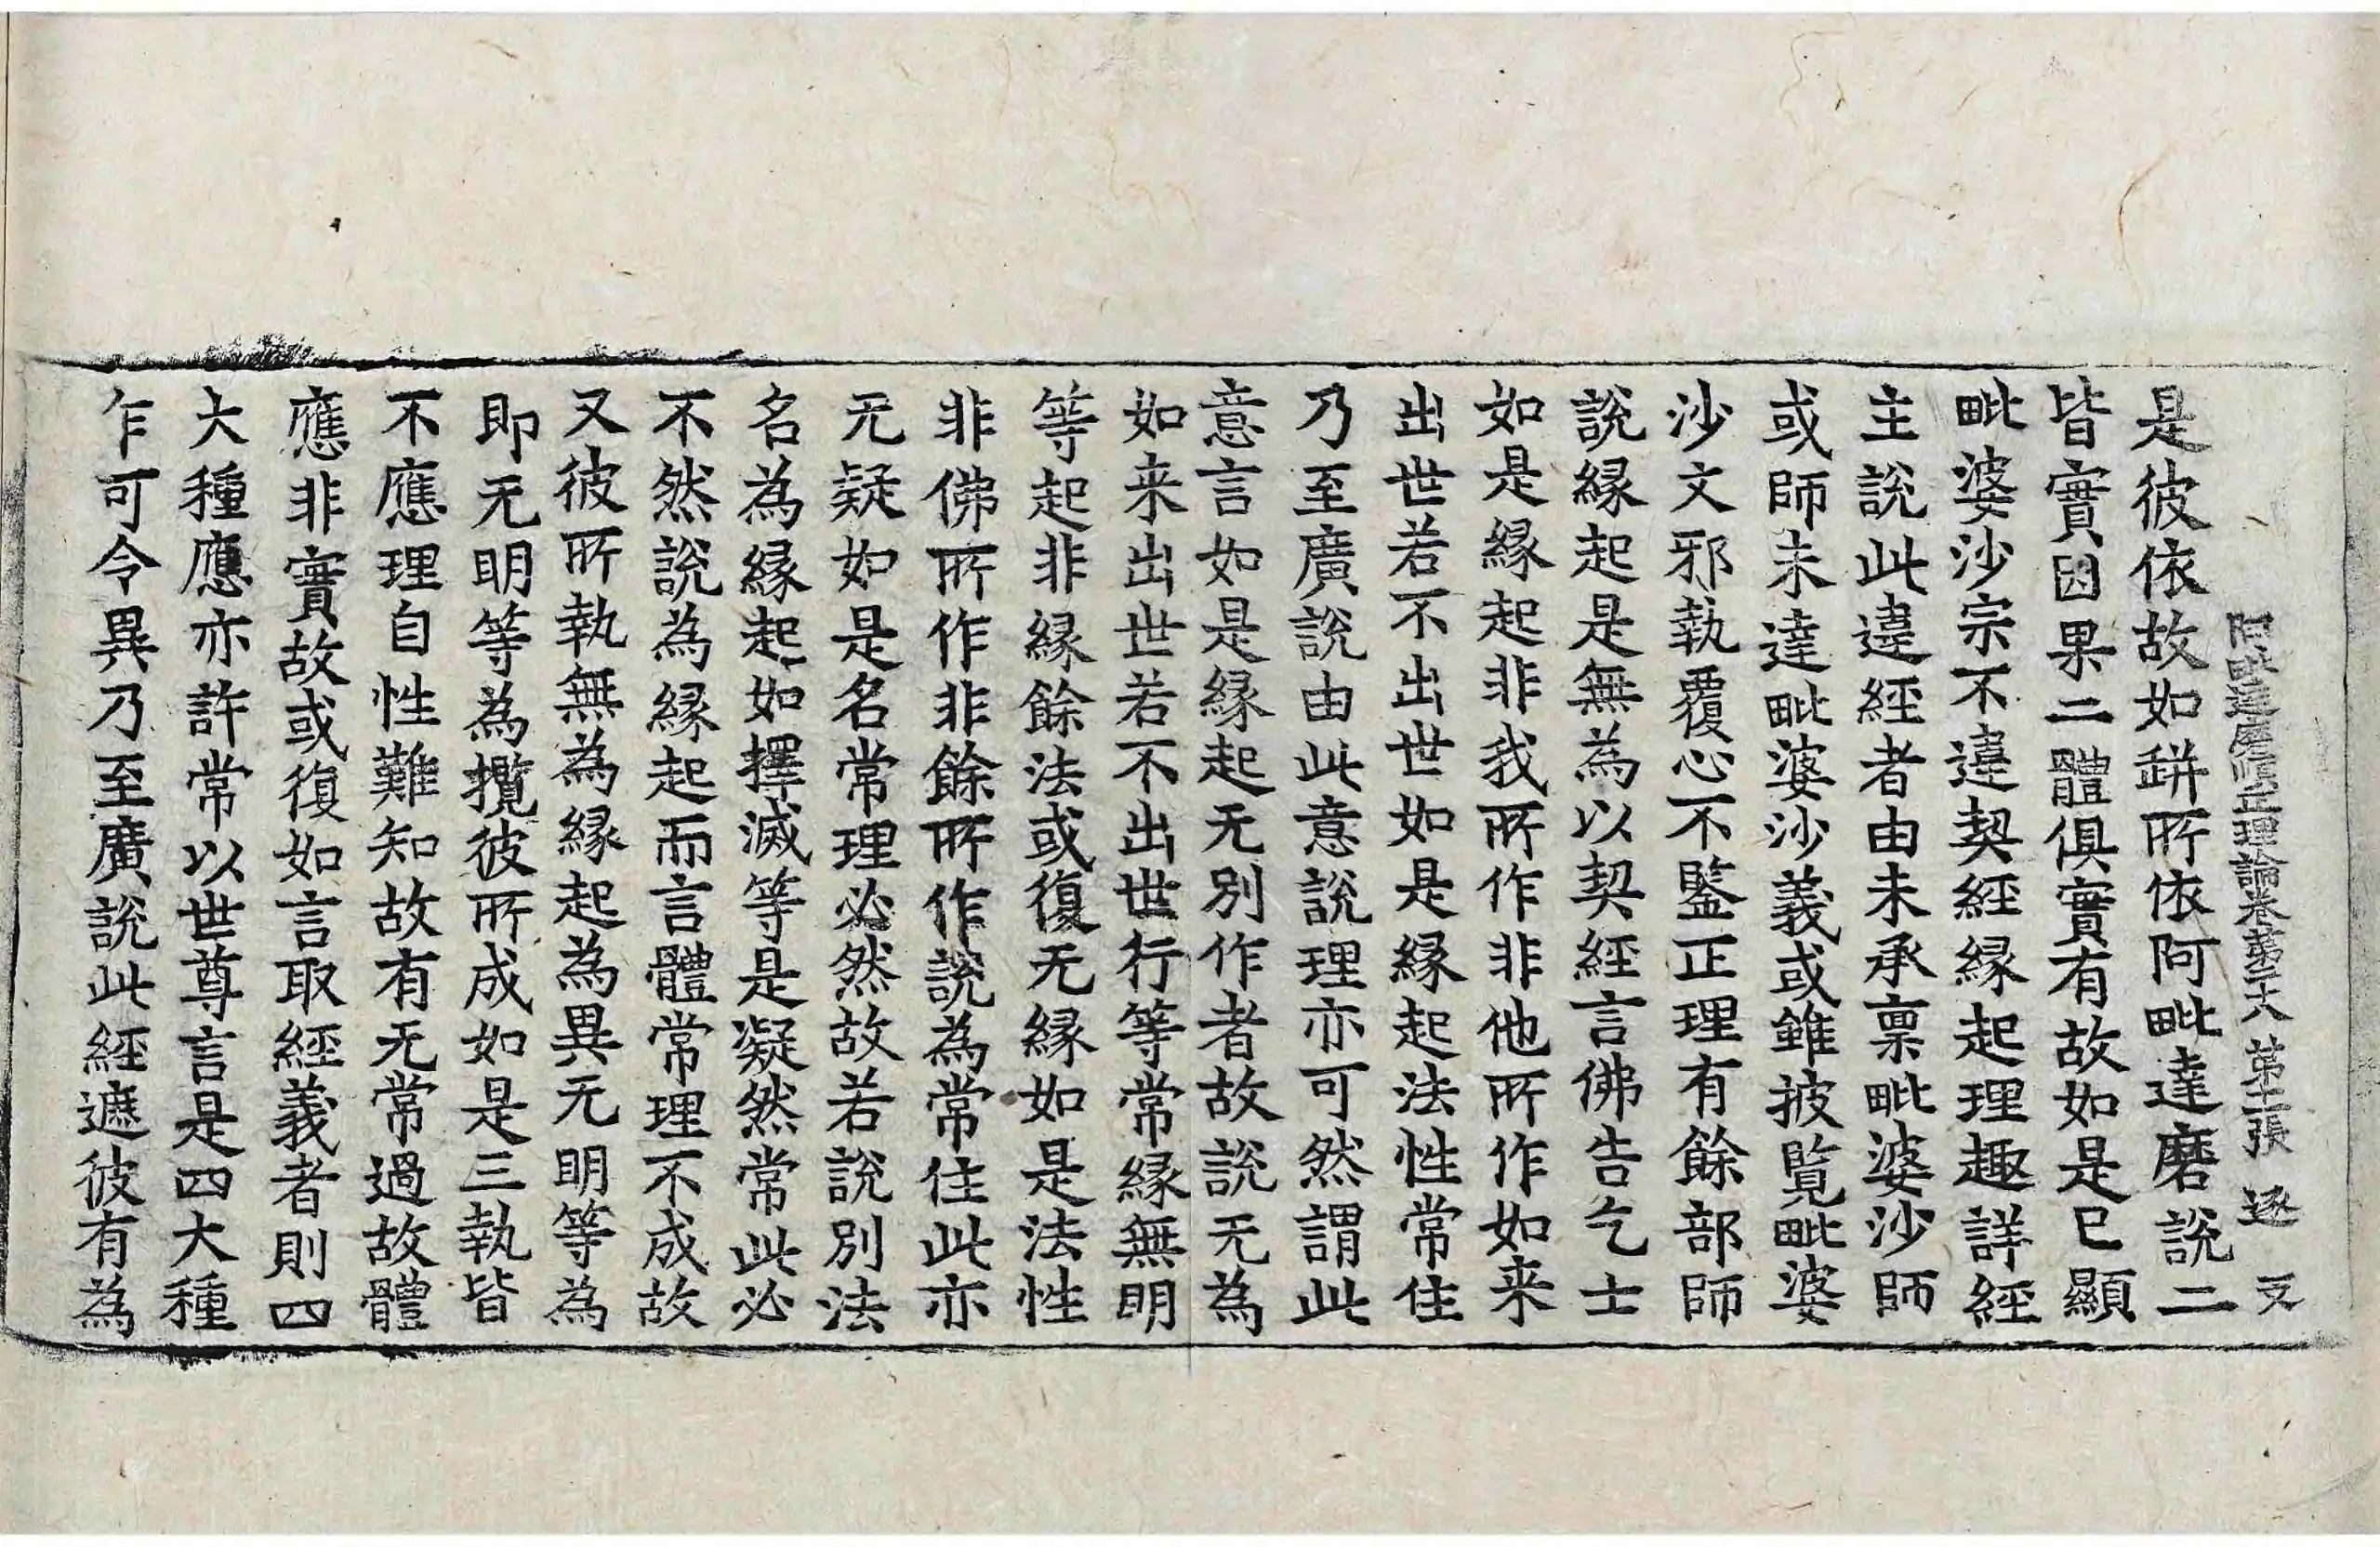 阿毗達磨順正理論卷第二十八 第十一張 逐 㕛
是彼依故如缾所依阿毗達磨說二
皆實因果二體俱實有故如是已顯
毗婆沙宗不違契經緣起理趣詳經
主說此違經者由未承禀毗婆沙師
或師未達毗婆沙義或雖披覽毗婆
沙文邪執覆心不鑒正理有餘部師
說緣起是無為以契經言佛告乞士
如是緣起非我所作非他所作如来
出世若不出世如是緣起法性常住
乃至廣說由此意說理亦可然謂此
意言如是緣起无別作者故說无為
如来出世若不出世行等常緣無明
等起非緣餘法或復无緣如是法性
非佛所作非餘所作說為常住此亦
无疑如是名常理必然故若說別法
名為緣起如擇滅等是凝然常此必
不然說為緣起而言體常理不成故
又彼所執無為緣起為異无明等為
即无明等為攬彼所成如是三執皆
不應理自性難知故有无常過故體
應非實故或復如言取經義者則四
大種應亦許常以世尊言是四大種
乍可令異乃至廣說此經遮彼有為